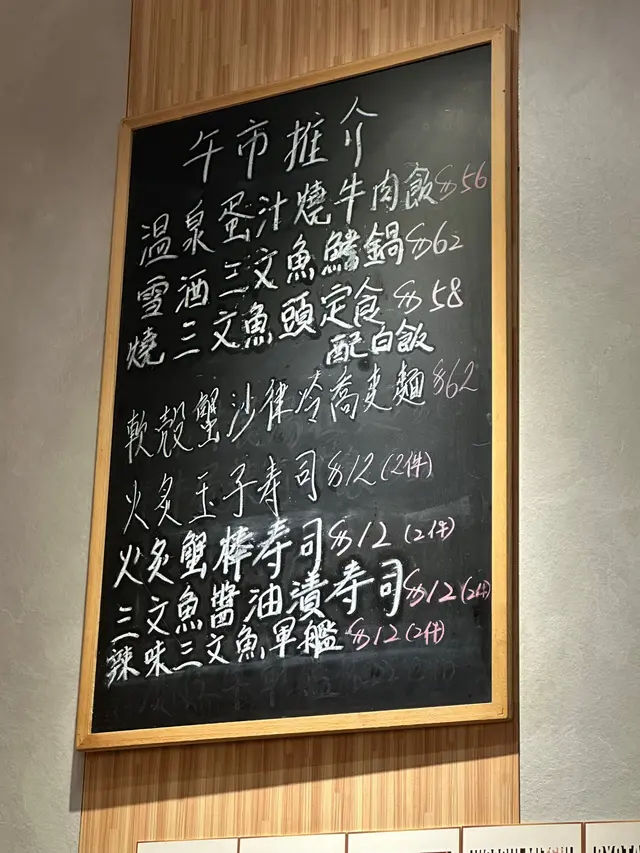 午市推介
溫泉蛋汁燒牛肉飯$56
雪酒三文魚鰭鍋$62
燒三文魚頭定食$58
配白飯
軟殼蟹沙律冷喬麥麵$62
火炙玉子寿司$12(2件)
火炙蟹棒寿司$12(2件)
三文魚醬油漬寿司$12(2件)
辣味三文魚軍艦$12(2件)